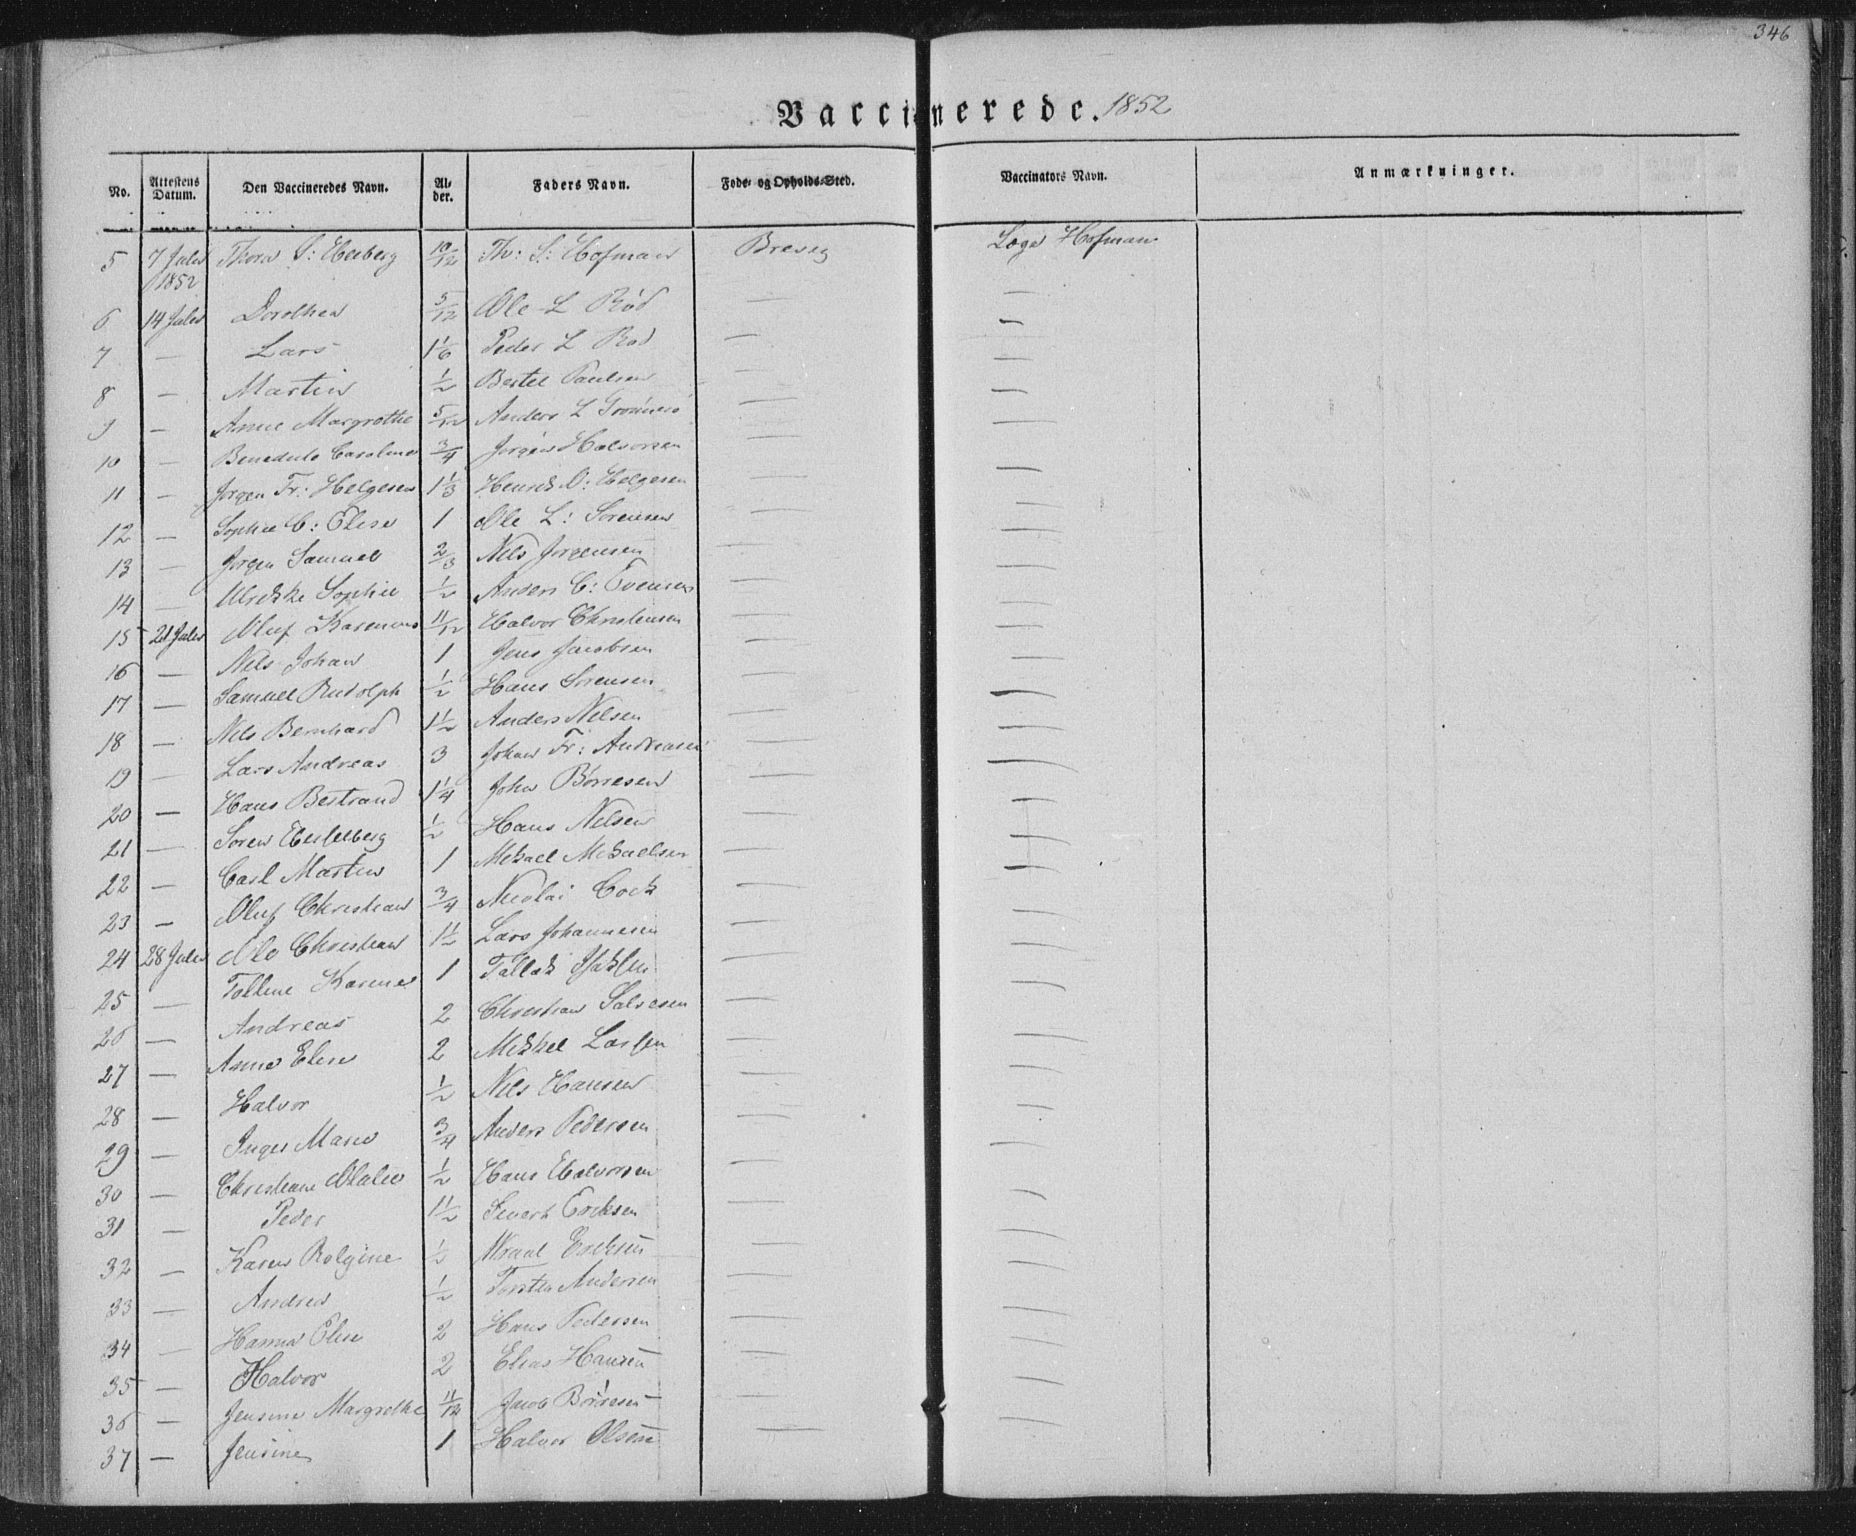 346
Vaccinerede. 1852
No. Attestens Datum. Den Vaccineredes Navn. Al- der. Faders Navn. Føde- og Opholds-Sted. Vaccinators Navn. Anmærkninger.
5 7 Julii 1852 Thora S: 10/12 Th: S: Hofman Brevig Læge Hofman
6 14 Julii Dorothea 5/12 Ole L Rød — —
7 — Lars 1 1/6 Peder L Rød — —
8 — Martin 1/2 Bertel Paulsen — —
9 — Anne Margrethe 5/12 Anders L — —
10 — Caroline 3/4 Jørgen Halvorsen — —
11 — Jørgen Fr: Helgesen 1 1/3 Henrik O: Helgesen — —
12 — Sophie C: Elise 1 Ole L: Sørensen — —
13 — Jørgen Samuel 2/3 Nils Jørgensen — —
14 — Ulrikke Sophie 1/2 Anders C: Evensen — —
15 21 Julii Oluf 11/12 Halvor Christensen — —
16 — Nils Johan 1 Jens Jacobsen — —
17 — Samuel Rudolph 1/2 Hans Sørensen — —
18 — Nils Bernhard 1 1/2 Anders Nilsen — —
19 — Lars Andreas 3 Johan Fr: Andreasen — —
20 — Hans Bertrand 1 1/4 John Børresen — —
21 — Søren 1/2 Hans Nilsen — —
22 — Carl Martin 1 Mikael Mikaelsen — —
23 — Oluf Christian 3/4 Nicolai Cock — —
24 28 Julii Ole Christian 1 1/2 Lars Johannesen — —
25 — Karine 1 Tallak — —
26 — Andreas 2 Christian Salvesen — —
27 — Anne Elise 2 Mikkel Larsen — —
28 — Halvor 1/2 Nils Hansen — —
29 — Inger Marie 3/4 Anders Pedersen — —
30 — Christiane Olalie 1/2 Hans Halvorsen — —
31 — Peder 1 1/2 Sivert Ericksen — —
32 — Karen 1/2 Wraal Ericksen — —
33 — Andrea 1/2 Torsten Andersen — —
34 — Hanna Elise 2 Hans Pedersen — —
35 — Halvor 2 Elias Hansen — —
36 — Jensine Margrethe 11/12 Jacob Børresen — —
37 — Jensine 1 Halvor Olsen — —